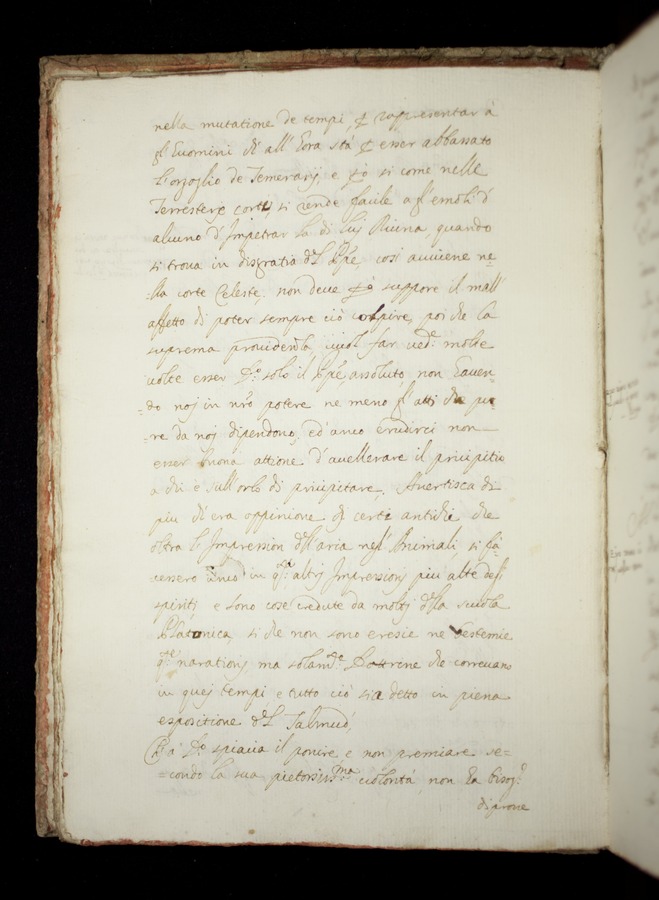 nella mutatione de tempi, ꝑ rappresentar à
gl'Huomini ch'all'hora stà ꝑ esser abbassato
l'orgoglio de Temerarij, e ꝑò si come nelle
Terrestre corti, si rende facile a gl'emoli d'
alcuno d'Impetrar la di lui Ruina, quando
si trova in disgratia del Pñpe, così avviene ne
lla corte Celeste, non deve ꝑò suppore il mall
affetto di poter sempre ciò colpire, poi che la
suprema providenza, vuol far ved.e molte
volte esser D.o solo il Pñpe assoluto, non haven
do noi in nr̃o potere ne meno gl'atti che pu
re da noi dipendono, ed anco erudirci non
esser buona attione d'avellerare il pricipitio
a chi è sull'orlo di pricipitare, Avertisca di
piu ch'era oppinione di certi antichi che
oltra l'Impression dell'aria negl'Animali, si fa
cessero anco in q.ti altri Impressioni piu alte degl'
spiriti, e sono cose credute da molti della scuola
Platonica, si che non sono eresie ne bestemie
q.te narationi, ma solam.te Dottrine che correvano
in quei tempi e tutto ciò sia detto in piena
espositione del Talmud,
Ch'à D.o spiacia il ponire e non premiare se=
=condo la sua pietosissi.ma volontà non ha bisog.o
di prove